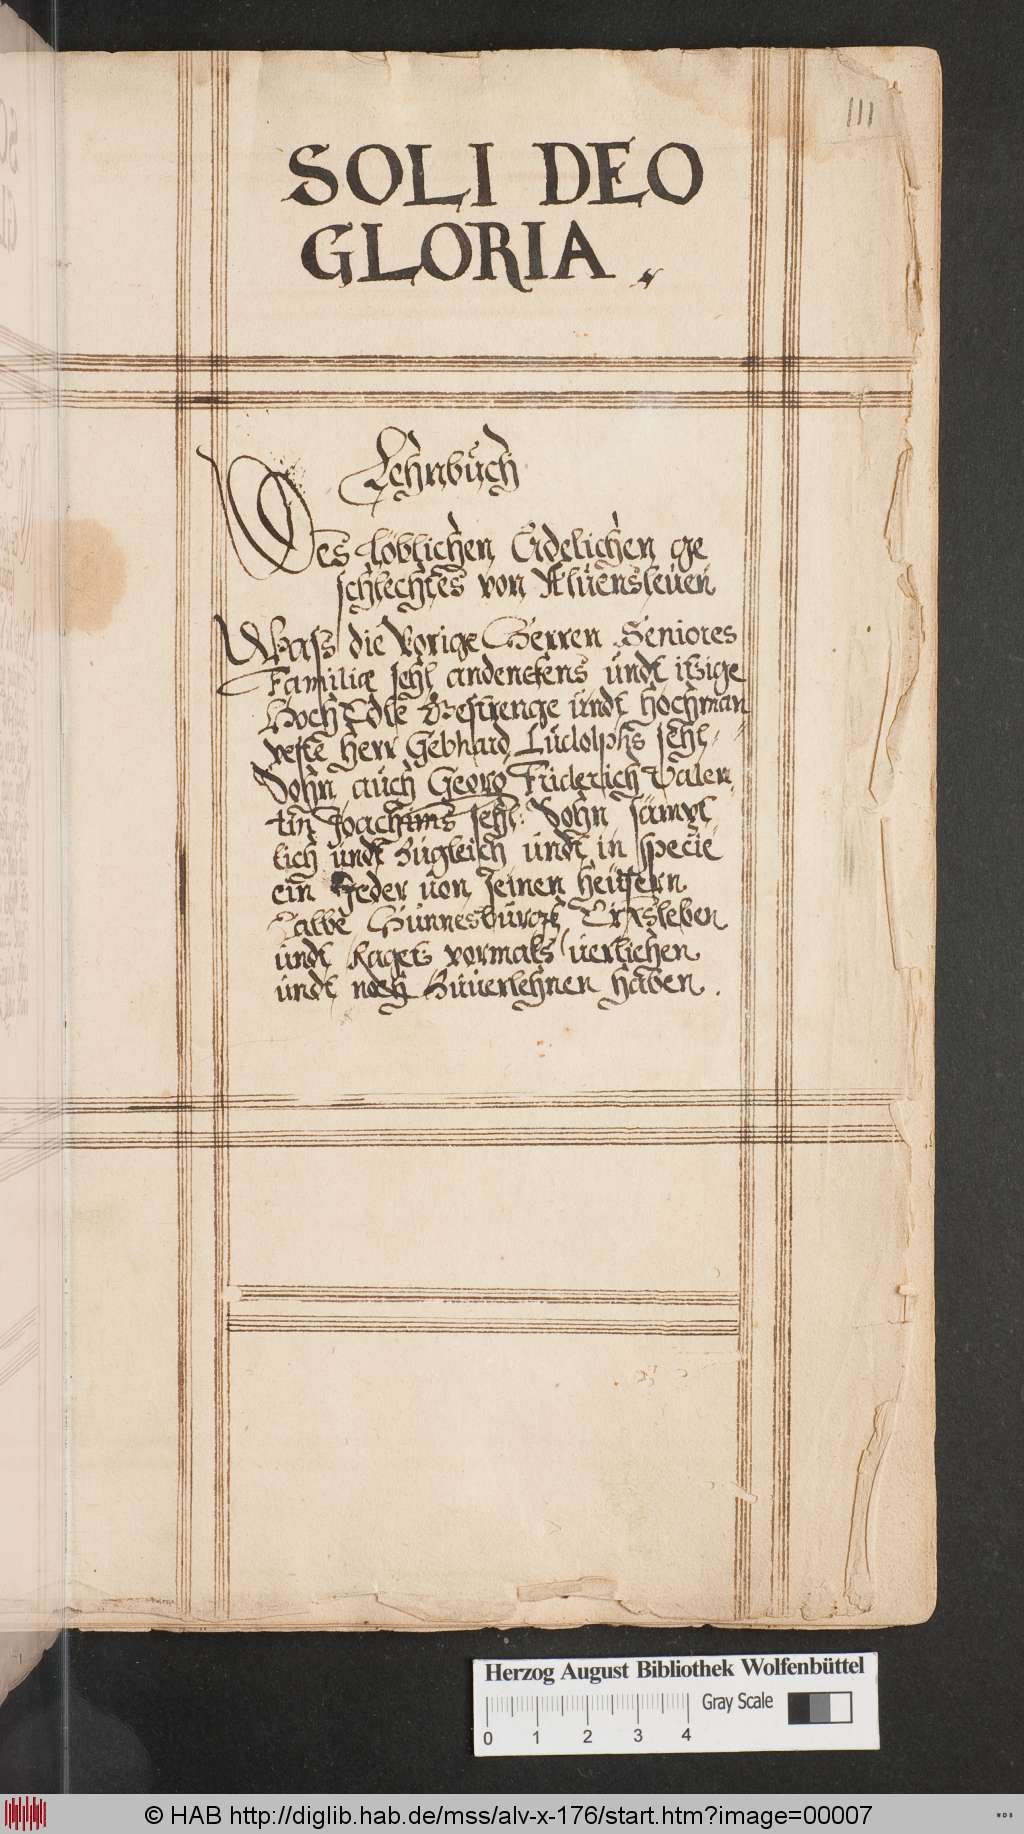 111
SOLI DEO
GLORIA.
Lehnbuch
Des Löblichen Adelichen ge
schlechtes von Aluensleuen
Waß die Vorige Herren Seniores
Familiæ sehl andenckens undt itzige
HochEdle Gestrenge undt hochman
veste herr Gebhard Ludolphs sehl.
Sohn auch Georg Friderich Valen
tin Joachims sehl: Sohn sämpt
lich undt Zugleich undt in specie
ein Jeder von seinen heüsern
Calbe Hunnesburgk Erxsleben
undt Rogetz vormals verliehen
undt noch Zuverlehnen haben.
Herzog August Bibliothek Wolfenbüttel
Gray Scale
0 1 2 3 4
© HAB http://diglib.hab.de/mss/alv-x-176/start.htm?image=00007
WDB